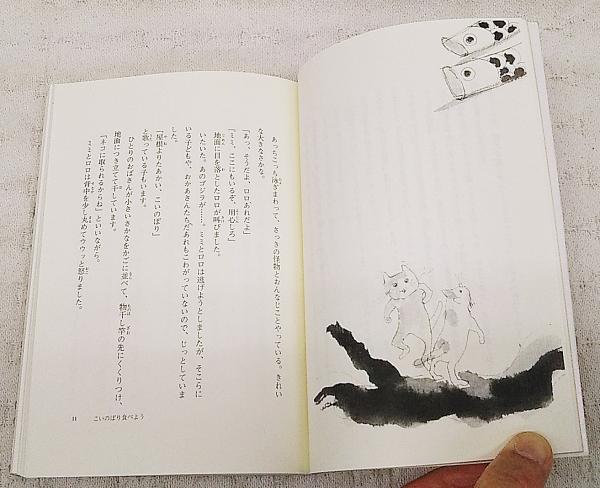 あっちこっち泳ぎまわって、さっきの怪物とおんなじことやっている。きれい
な大きなさかな。
「あっ、そうだよ、ロロあれだよ」
「ミミ、ここにもいるぞ、用心しろ」
地面に目を落としたロロが叫びました。
いたいた。あのゴジラが……。ミミとロロは逃げようとしましたが、そこらに
いる子どもや、おかあさんたちだあれもこわがっていないので、じっとしていま
した。
「屋根よりたかあい、こいのぼり」
と歌っている子もいます。
ひとりのおばさんが小さいさかなをかごに並べて、物干し竿の先にくくりつけ、
地面につき立てて干しています。
「ネコに取られるからね」といいながら。
ミミとロロは背中を少し丸めてウウッと怒りました。
11 こいのぼり食べよう